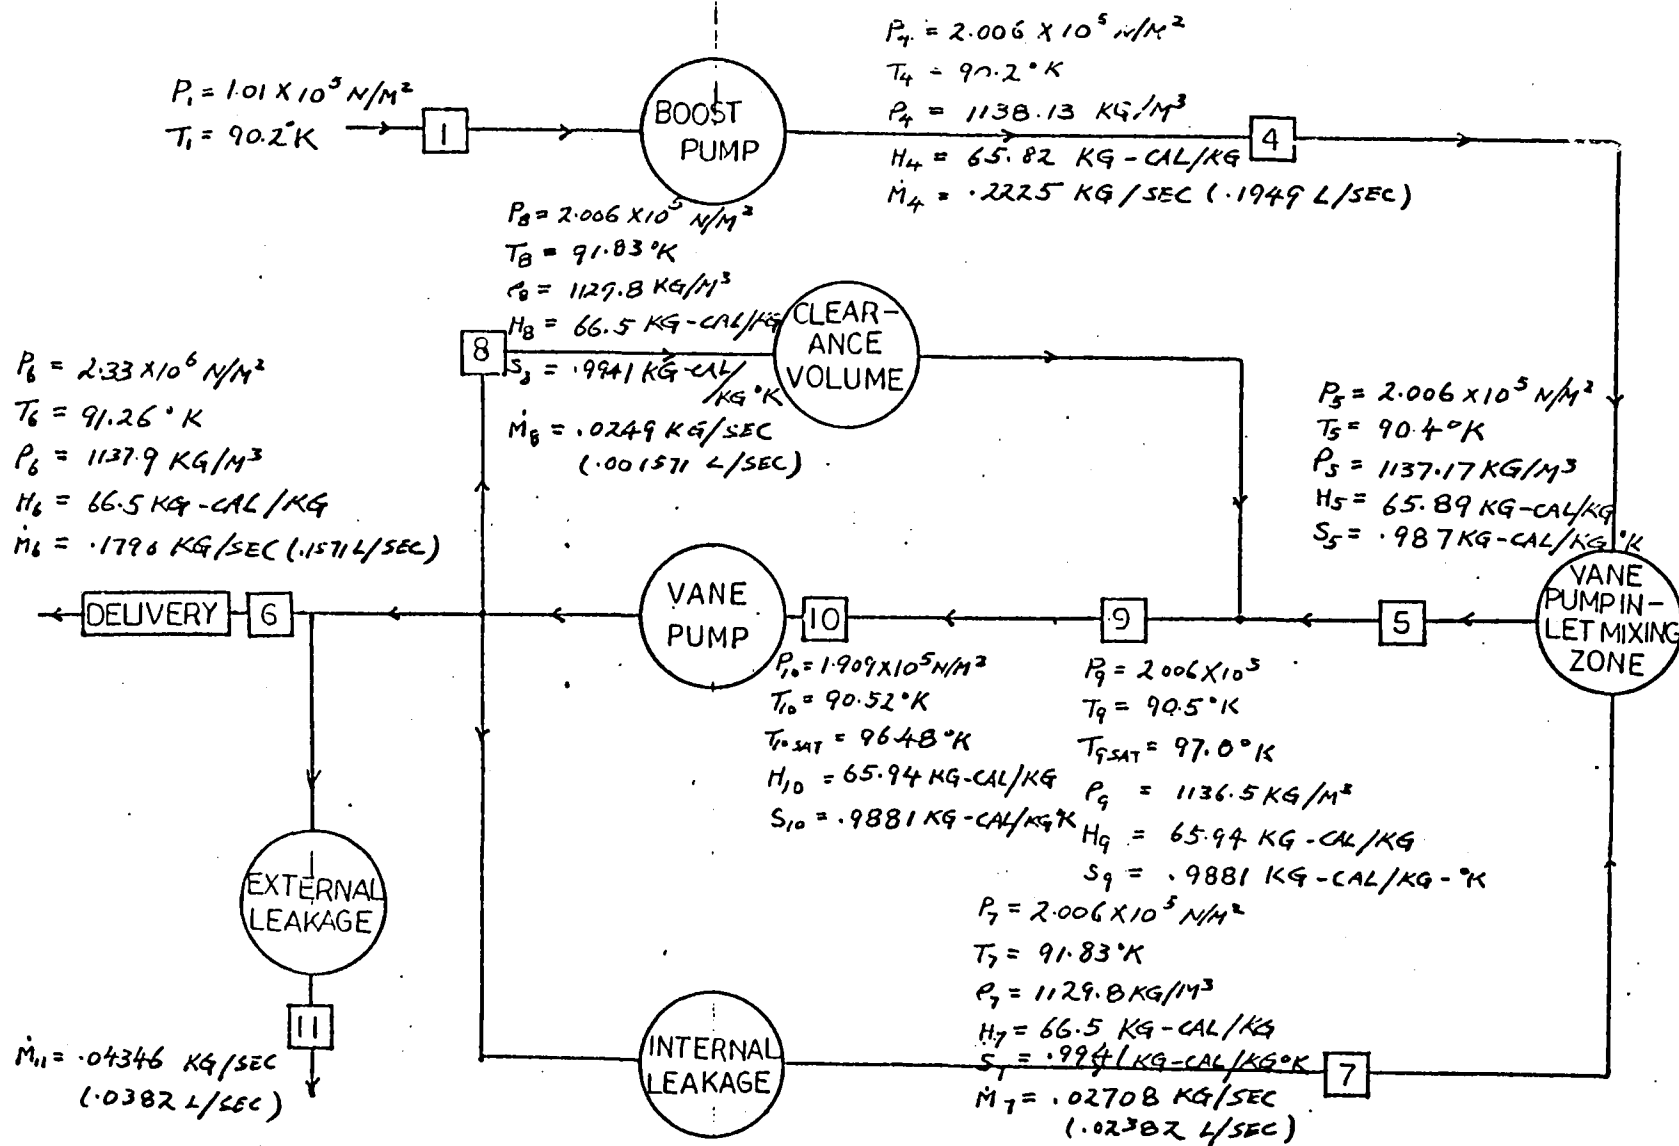 P₁ = 1.01 X 10⁵ N/M²
T₁ = 90.2°K
1
BOOST
PUMP
P₄ = 2.006 X 10⁵ N/M²
T₄ = 90.2°K
ρ₄ = 1138.13 KG/M³
H₄ = 65.82 KG-CAL/KG
Ṁ₄ = .2225 KG/SEC (.1949 L/SEC)
4
P₈ = 2.006 X10⁵ N/M²
T₈ = 91.83°K
ρ₈ = 1129.8 KG/M³
H₈ = 66.5 KG-CAL/KG
8
S₈ = .9941 KG-CAL/
/KG°K
Ṁ₈ = .0249 KG/SEC
(.001571 L/SEC)
CLEAR-
ANCE
VOLUME
P₆ = 2.33 X10⁶ N/M²
T₆ = 91.26°K
ρ₆ = 1137.9 KG/M³
H₆ = 66.5 KG-CAL/KG
Ṁ₆ = .1790 KG/SEC (.1571 L/SEC)
P₅ = 2.006 X10⁵ N/M²
T₅ = 90.4°K
ρ₅ = 1137.17 KG/M³
H₅ = 65.89 KG-CAL/KG
S₅ = .987 KG-CAL/KG°K
DELIVERY
6
VANE
PUMP
10
9
5
VANE
PUMP IN-
LET MIXING
ZONE
P₁₀ = 1.909X10⁵N/M²
T₁₀ = 90.52°K
T₁₀ SAT = 96.48°K
H₁₀ = 65.94 KG-CAL/KG
S₁₀ = .9881 KG-CAL/KG°K
P₉ = 2 006 X10⁵
T₉ = 90.5°K
T₉SAT = 97.0°K
ρ₉ = 1136.5 KG/M³
H₉ = 65.94 KG-CAL/KG
S₉ = .9881 KG-CAL/KG-°K
EXTERNAL
LEAKAGE
11
Ṁ₁₁ = .04346 KG/SEC
(.0382 L/SEC)
INTERNAL
LEAKAGE
P₇ = 2.006X10⁵ N/M²
T₇ = 91.83°K
ρ₇ = 1129.8 KG/M³
H₇ = 66.5 KG-CAL/KG
S₇ = .9941 KG-CAL/KG°K
7
Ṁ₇ = .02708 KG/SEC
(.02382 L/SEC)